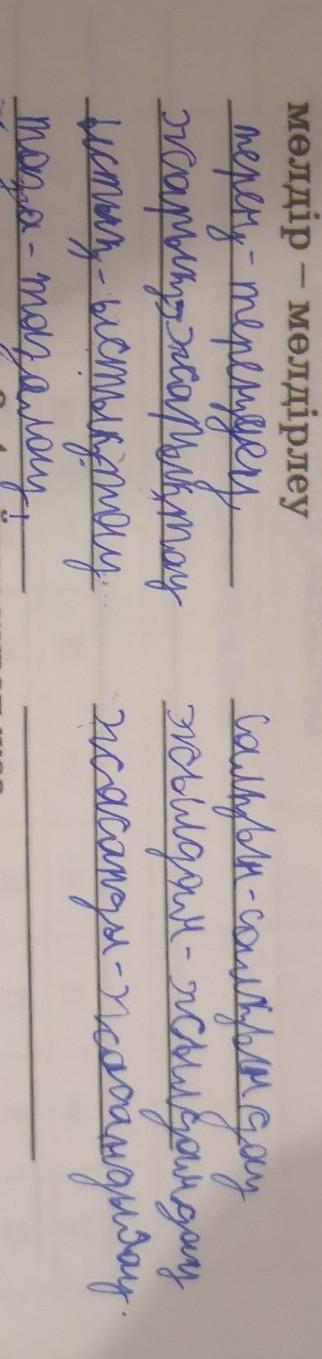 мөлдір – мөлдірлеу
терең - тереңдеу
жарық - жарықтау
ыстық - ыстықтау
таза - тазалау
салқын - салқындау
жылдам - жылдамдау
жасанды - жасандылау.